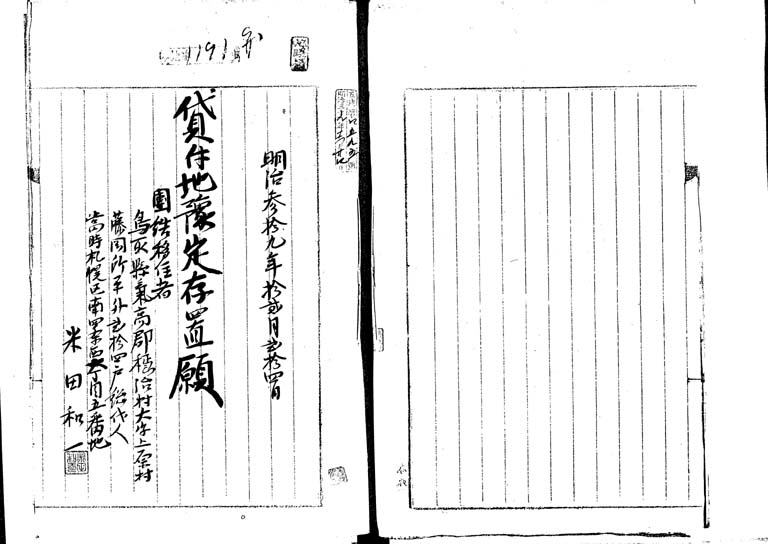 191
明治参拾九年拾弐月弐拾四日
貸付地豫定存置願
團結移住者
鳥取縣氣高郡 村大字上原村
藤岡 平外弐拾四戸総代人
當時札幌区南四条西 丁目五番地
米田和一